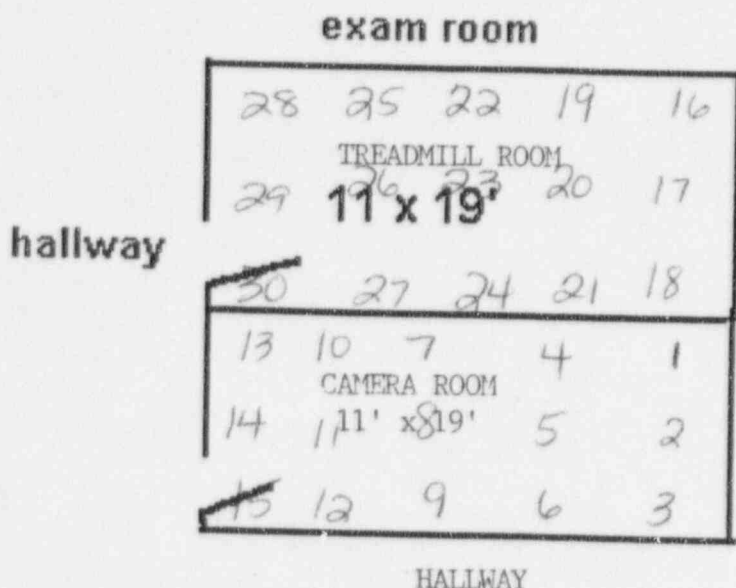 exam room
28 25 22 19 16
TREADMILL ROOM
29 26 23 20 17
11 x 19'
hallway
30 27 24 21 18
13 10 7 4 1
CAMERA ROOM
11' x 19'
14 11 8 5 2
15 12 9 6 3
HALLWAY